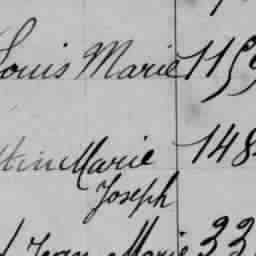 Louis Marie 115
Marie 148
Joseph
Jean Marie 33